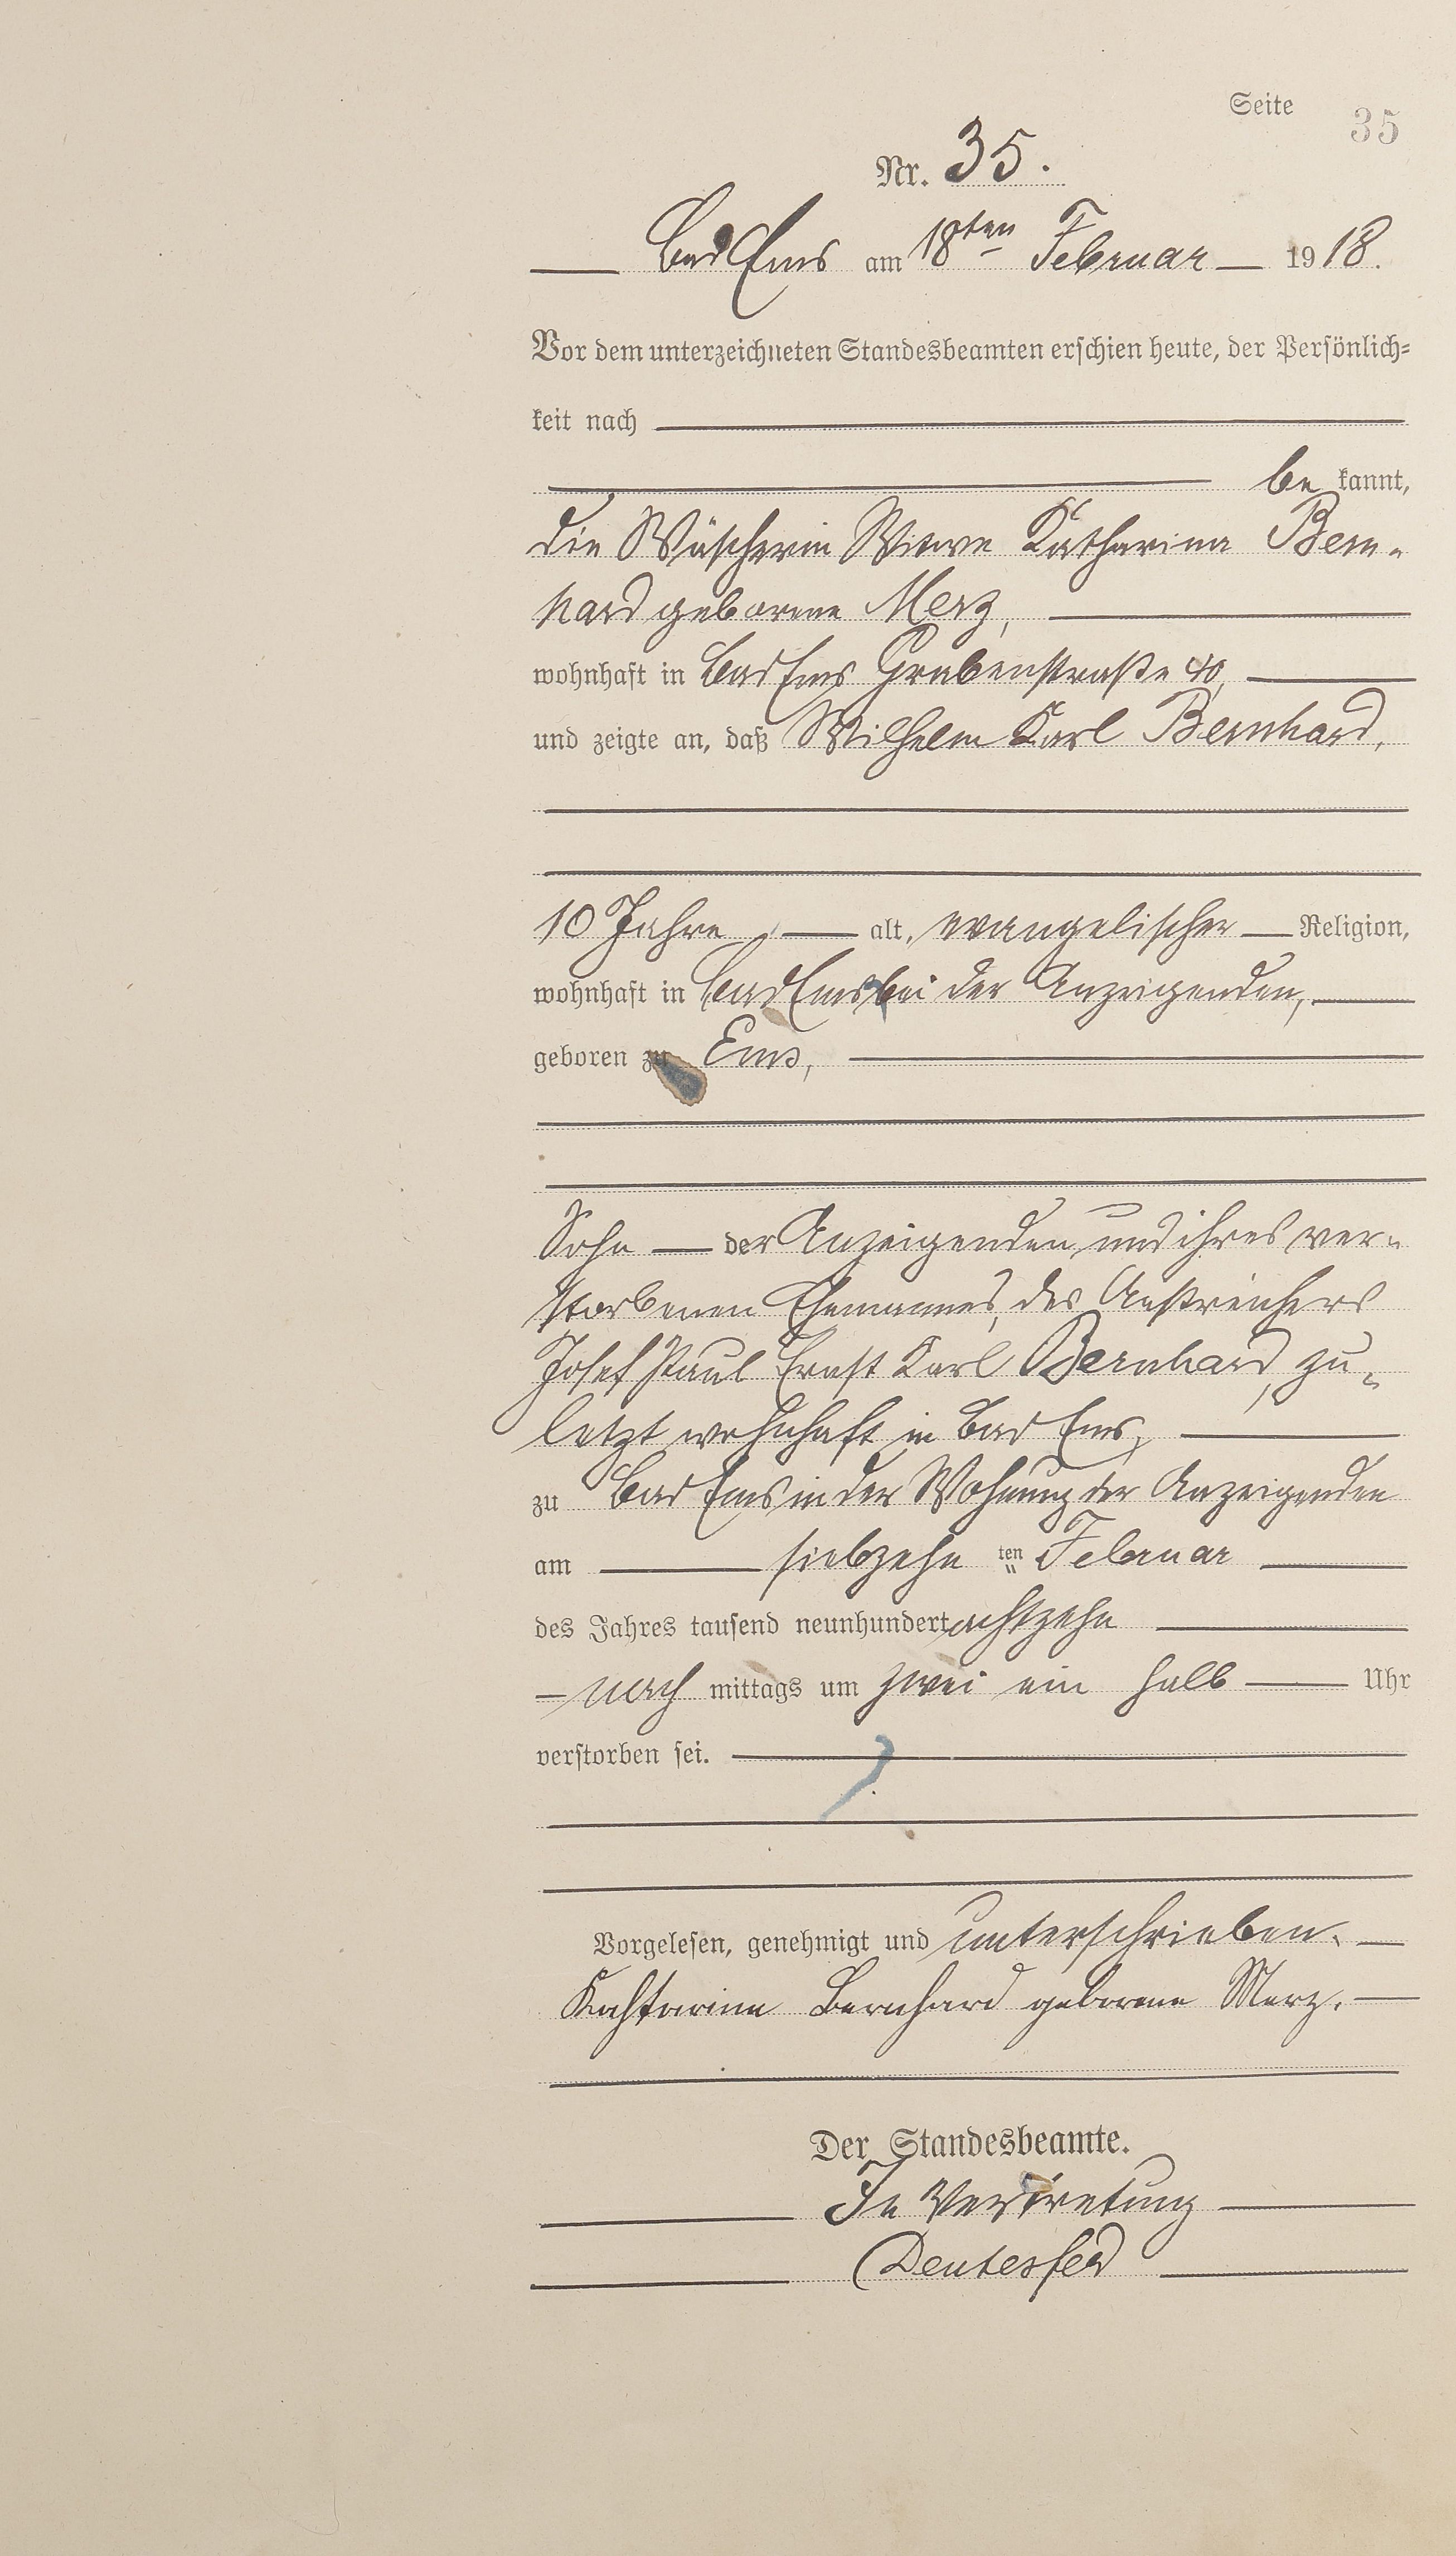 Seite 35
Nr. 35.
Bad Ems am 18ten Februar 1918.
Vor dem unterzeichneten Standesbeamten erschien heute, der Persönlich=
keit nach
be kannt,
die Wäscherin Witwe Katharina Bern-
hard geborene Merz,
wohnhaft in Bad Ems Grabenstraße 40,
und zeigte an, daß Wilhelm Karl Bernhard,
10 Jahre alt, evangelischer Religion,
wohnhaft in Bad Ems bei der Anzeigenden,
geboren zu Ems,
Sohn der Anzeigenden und ihres ver-
storbenen Ehemannes, des Anstreichers
Josef Paul Ernst Karl Bernhard, zu-
letzt wohnhaft in Bad Ems,
zu Bad Ems in der Wohnung der Anzeigenden
am siebzehn ten Februar
des Jahres tausend neunhundert achtzehn
nach mittags um zwei ein halb Uhr
verstorben sei.
Vorgelesen, genehmigt und unterschrieben.
Kahtarina Bernhard geborene Merz.
Der Standesbeamte.
In Vertretung